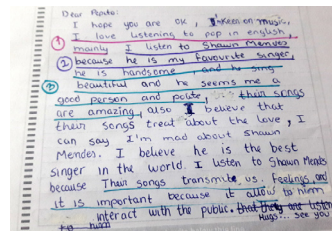 Dear Panto:
I hope you are OK, I keen on music,
① I love listening to pop in english,
mainly I listen to Shawn Mendes
② because he is my favourite singer,
he is handsome, and he sing
③ beautiful and he seems me a
good person and polite, their songs
are amazing, also I believe that
their songs treat about the love, I
can say I'm mad about Shawn
Mendes. I believe he is the best
singer in the world. I listen to Shawn Mends
because Their songs transmite us. feelings and
it is important because it allow to himm
interact with the public. that they are listen
to him Hugs... see you